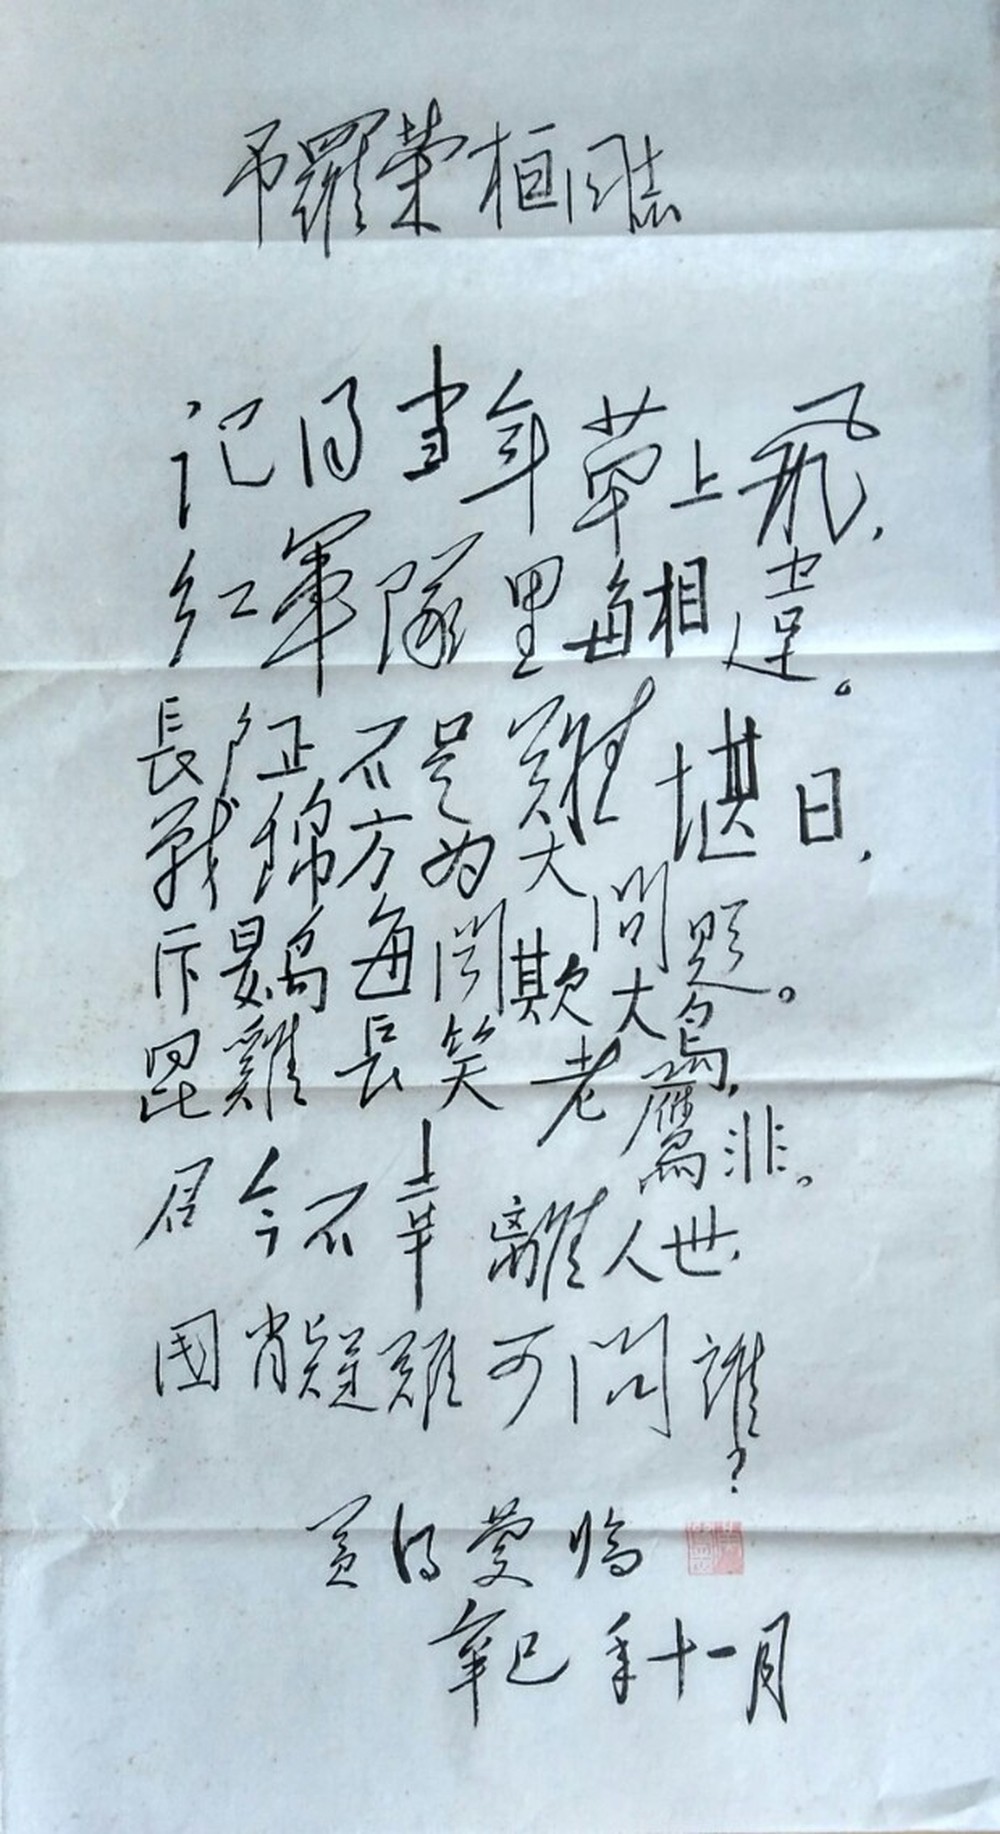 吊羅荣桓同誌
记得当年草上飛,
红軍隊里每相違。
長征不是難堪日,
戰錦方为大問题。
斥鷃每闻欺大鳥,
昆雞長笑老鷹非。
君今不幸離人世,
國有疑難可問誰?
黄得愛临
辛巳年十一月